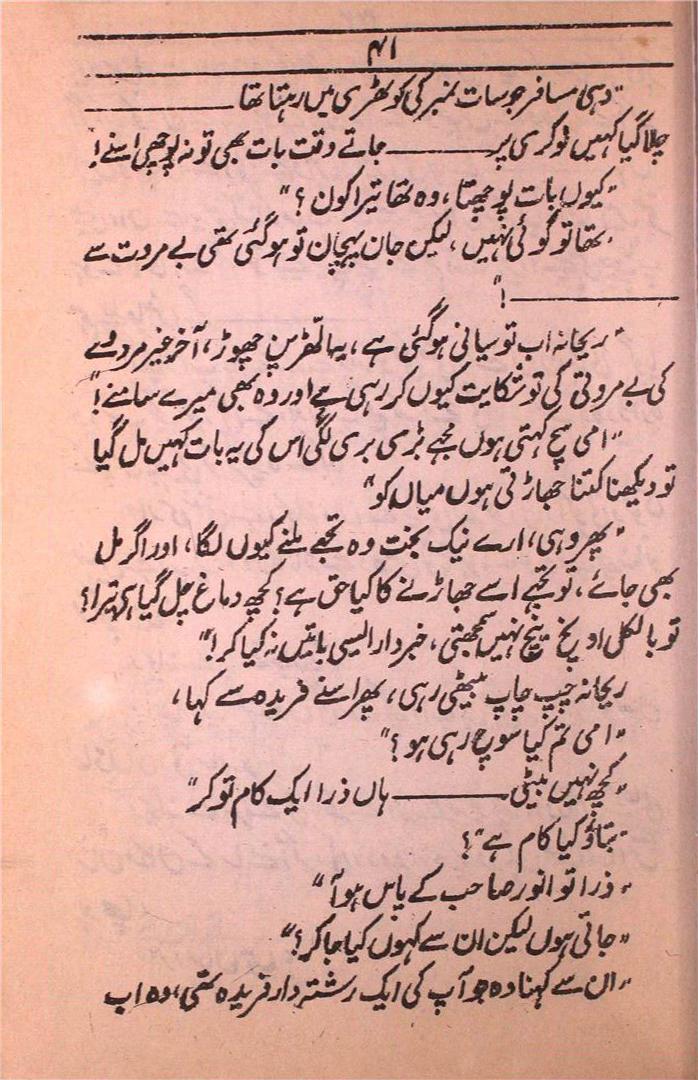 ۴۱
"وہی مسافر جو سات نمبر کی کوٹھری میں رہتا تھا ــــــــ
چلا گیا کہیں نوکری پر ــــــــ جاتے وقت بات بھی تو نہ پوچھی اسنے!
"کیوں بات پوچھتا، وہ تھا تیرا کون؟"
"تھا تو کوئی نہیں، لیکن جان پہچان تو ہو گئی تھی بے مروت سے
ــــــــ!"
"ریحانہ اب تو سیانی ہو گئی ہے، یہ الھڑ پن چھوڑ، آخر غیر مرد سے
کی بے مروتی کی تو شکایت کیوں کر رہی ہے اور وہ بھی میرے سامنے!"
"امی سچ کہتی ہوں مجھے بڑی بری لگی اس کی یہ بات کہیں مل گیا
تو دیکھنا کتنا جھاڑتی ہوں میاں کو"
"پھر وہی، ارے نیک بخت وہ تجھے ملنے کیوں لگا، اور اگر مل
بھی جائے، تو تجھے اسے جھاڑنے کا کیا حق ہے؟ کچھ دماغ چل گیا ہی تیرا؟
تو بالکل اونچ نیچ نہیں سمجھتی، خبردار ایسی باتیں نہ کیا کر!"
ریحانہ چپ چاپ بیٹھی رہی، پھر اسنے فریدہ سے کہا،
"امی تم کیا سوچ رہی ہو؟"
"کچھ نہیں بیٹی ــــــــ ہاں ذرا ایک کام تو کر"
"بتاؤ کیا کام ہے"؟
"ذرا تو انور صاحب کے پاس ہو آ"
"جاتی ہوں لیکن ان سے کہوں کیا جا کر؟"
"ان سے کہنا وہ جو آپ کی ایک رشتہ دار فریدہ تھی، وہ اب